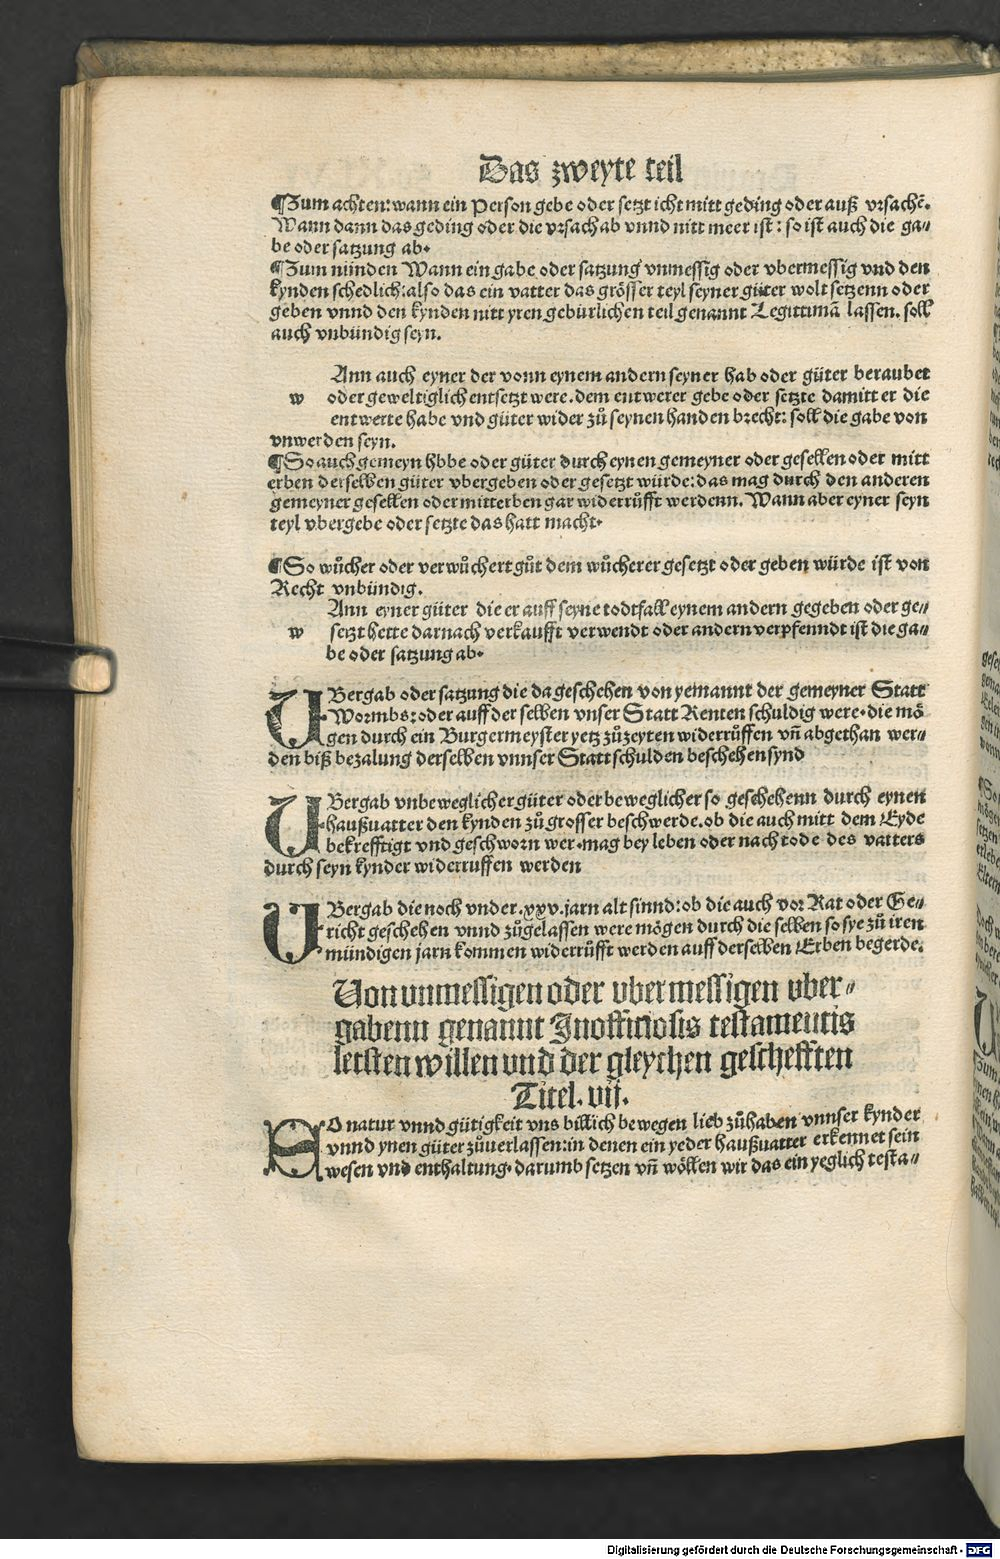 Das zweyte teil
¶Zum achten: wann ein Person gebe oder setzt icht mitt geding oder auß vrsachẽ.
Wann dann das geding oder die vrsach ab vnnd nitt meer ist: so ist auch die ga⸗
be oder satzung ab.
¶Zum nünden Wann ein gabe oder satzung vnmessig oder vbermessig vnd den
kynden schedlich: also das ein vatter das grösser teyl seyner güter wolt setzenn oder
geben vnnd den kynden nitt yren gebürlichen teil genannt Legittimã lassen. soll
auch vnbündig seyn.
Ann auch eyner der vonn eynem andern seyner hab oder güter beraubet
w oder geweltiglich entsetzt were. dem entwerer gebe oder setzte damitt er die
entwerte habe vnd güter wider zů seynen handen brecht: soll die gabe von
vnwerden seyn.
¶So auch gemeyn hbbe oder güter durch eynen gemeyner oder gesellen oder mitt
erben derselben güter vbergeben oder gesetzt würde: das mag durch den anderen
gemeyner gesellen oder mitterben gar widerrůfft werdenn. Wann aber eyner seyn
teyl vbergebe oder setzte das hatt macht.
¶So wůcher oder verwůchert gůt dem wůcherer gesetzt oder geben würde ist von
Recht vnbündig.
Ann eyner güter die er auff seyne todtfall eynem andern gegeben oder ge⸗
w setzt hette darnach verkaufft verwendt oder andern verpfenndt ist die ga⸗
be oder satzung ab.
UBergab oder satzung die da geschehen von yemannt der gemeyner Statt
Wormbs: oder auff der selben vnser Statt Renten schuldig were. die mö
gen durch ein Burgermeyster yetz zůzeyten widerrůffen vñ abgethan wer⸗
den biß bezalung derselben vnnser Statt schulden beschehen synd
UBergab vnbeweglicher güter oder beweglicher so geschehenn durch eynen
haußuatter den kynden zů grosser beschwerde. ob die auch mitt dem Eyde
bekrefftigt vnd geschworn wer. mag bey leben oder nach tode des vatters
durch seyn kynder widerruffen werden
UBergab die noch vnder .xxv. jarn alt sinnd: ob die auch vor Rat oder Ge⸗
richt geschehen vnnd zůgelassen were mögen durch die selben so sye zů iren
mündigen jarn kommen widerrůfft werden auff derselben Erben begerde.
Von vnmessigen oder vbermessigen vber⸗
gabenn genannt Inofficiosis testamentis
letsten willen vnd der gleychen geschefften
Titel. vij.
SO natur vnnd gütigkeit vns billich bewegen lieb zůhaben vnnser kynder
vnnd ynen güter zůuerlassen: in denen ein yeder haußuatter erkennet sein
wesen vnd enthaltung. darumb setzen vñ wöllen wir das ein yeglich testa⸗
Digitalisierung gefördert durch die Deutsche Forschungsgemeinschaft - DFG